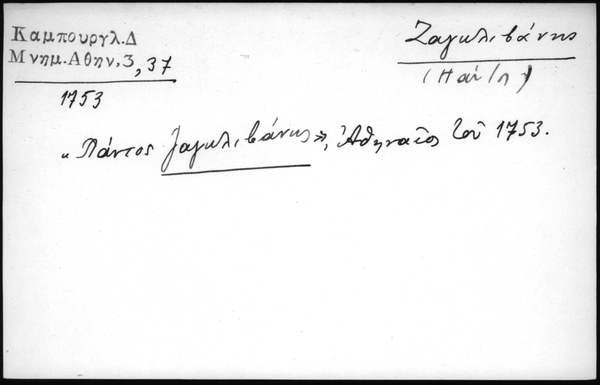 Καμπουργλ.Δ
Μνημ.Αθην,3,37
1753
Ζαγκλιβάνης
« Πάντος Ζαγκλιβάνης», Ἀθηναῖος τοῦ 1753.